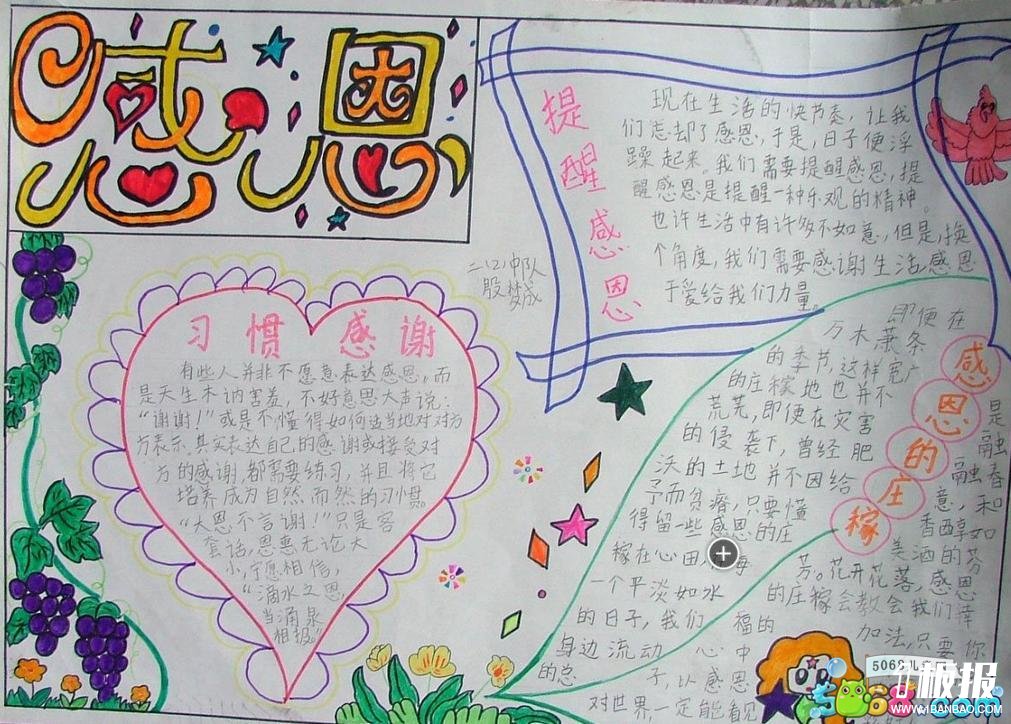 感恩
提醒感恩
现在生活的快节奏，让我
们忘却了感恩，于是，日子便浮
躁起来。我们需要提醒感恩，提
醒感恩是提醒一种乐观的精神。
也许生活中有许多不如意，但是，换
个角度，我们需要感谢生活，感恩
于爱给我们力量。
二（2）中队
殷梦成
习惯感谢
有些人并非不愿意表达感恩，而
是天生木讷害羞，不好意思大声说：
“谢谢！”或是不懂得如何适当地对对方
方表示。其实表达自己的感谢或接受对
方的感谢，都需要练习，并且将它
培养成为自然而然的习惯。
“大恩不言谢！”只是客
套话，恩惠无论大
小，宁愿相信，
“滴水之恩，
当涌泉
相报。”
感恩的庄稼
即便在
万木萧条
的季节，这样宽广
的庄稼地也并不
荒芜，即便在灾害
的侵袭下，曾经肥
沃的土地并不因给
予而贫瘠，只要懂
得留一些感恩的庄
稼在心田，每
一个平淡如水
的日子，我们
身边流动
的总
是
融融春
意，和
香醇如
美酒的芬
芳。花开花落，感恩
的庄稼会教会我们幸
福的
加法，只要你
心中
子，以感恩
对世界，一定能看见
5068儿
极报
WWW.1BANBAO.COM